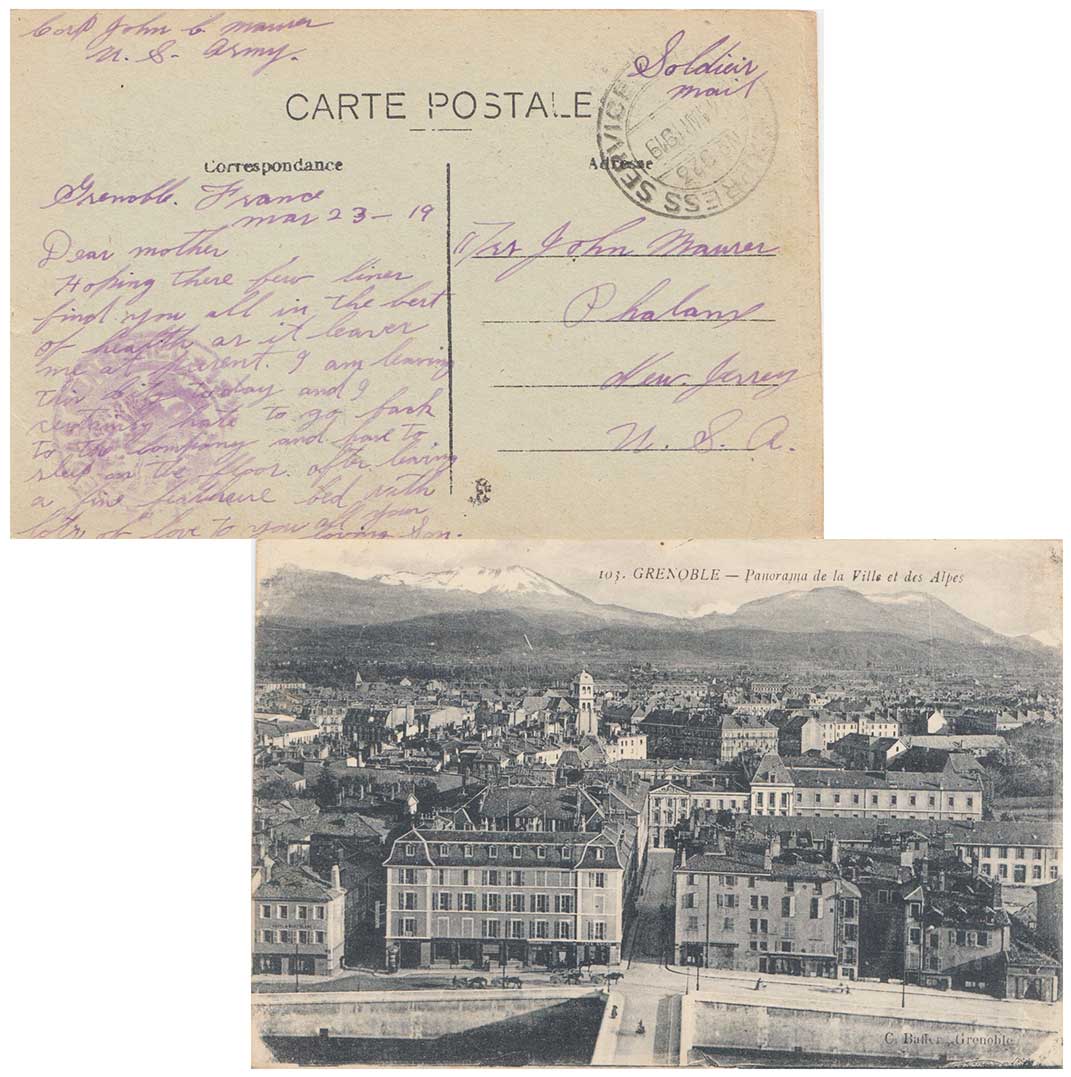 Corp John C. Maurer
U. S. Army.
Soldier
mail
CARTE POSTALE
Correspondance
Adresse
Grenoble. France
Mar 23 - 19
Dear mother
Hoping these few lines
find you all in the best
of health as it leaves
me at present. I am leaving
this city today and I
certainly hate to go back
to the company and have to
sleep on the floor. after leaving
a fine bed with
lots of love to you all your
loving Son.
John Maurer
Phalanx
New. Jersey
U. S. A.
PRESS SERVICE
MAR 1919
103. GRENOBLE — Panorama de la Ville et des Alpes
C. Baffer, Grenoble